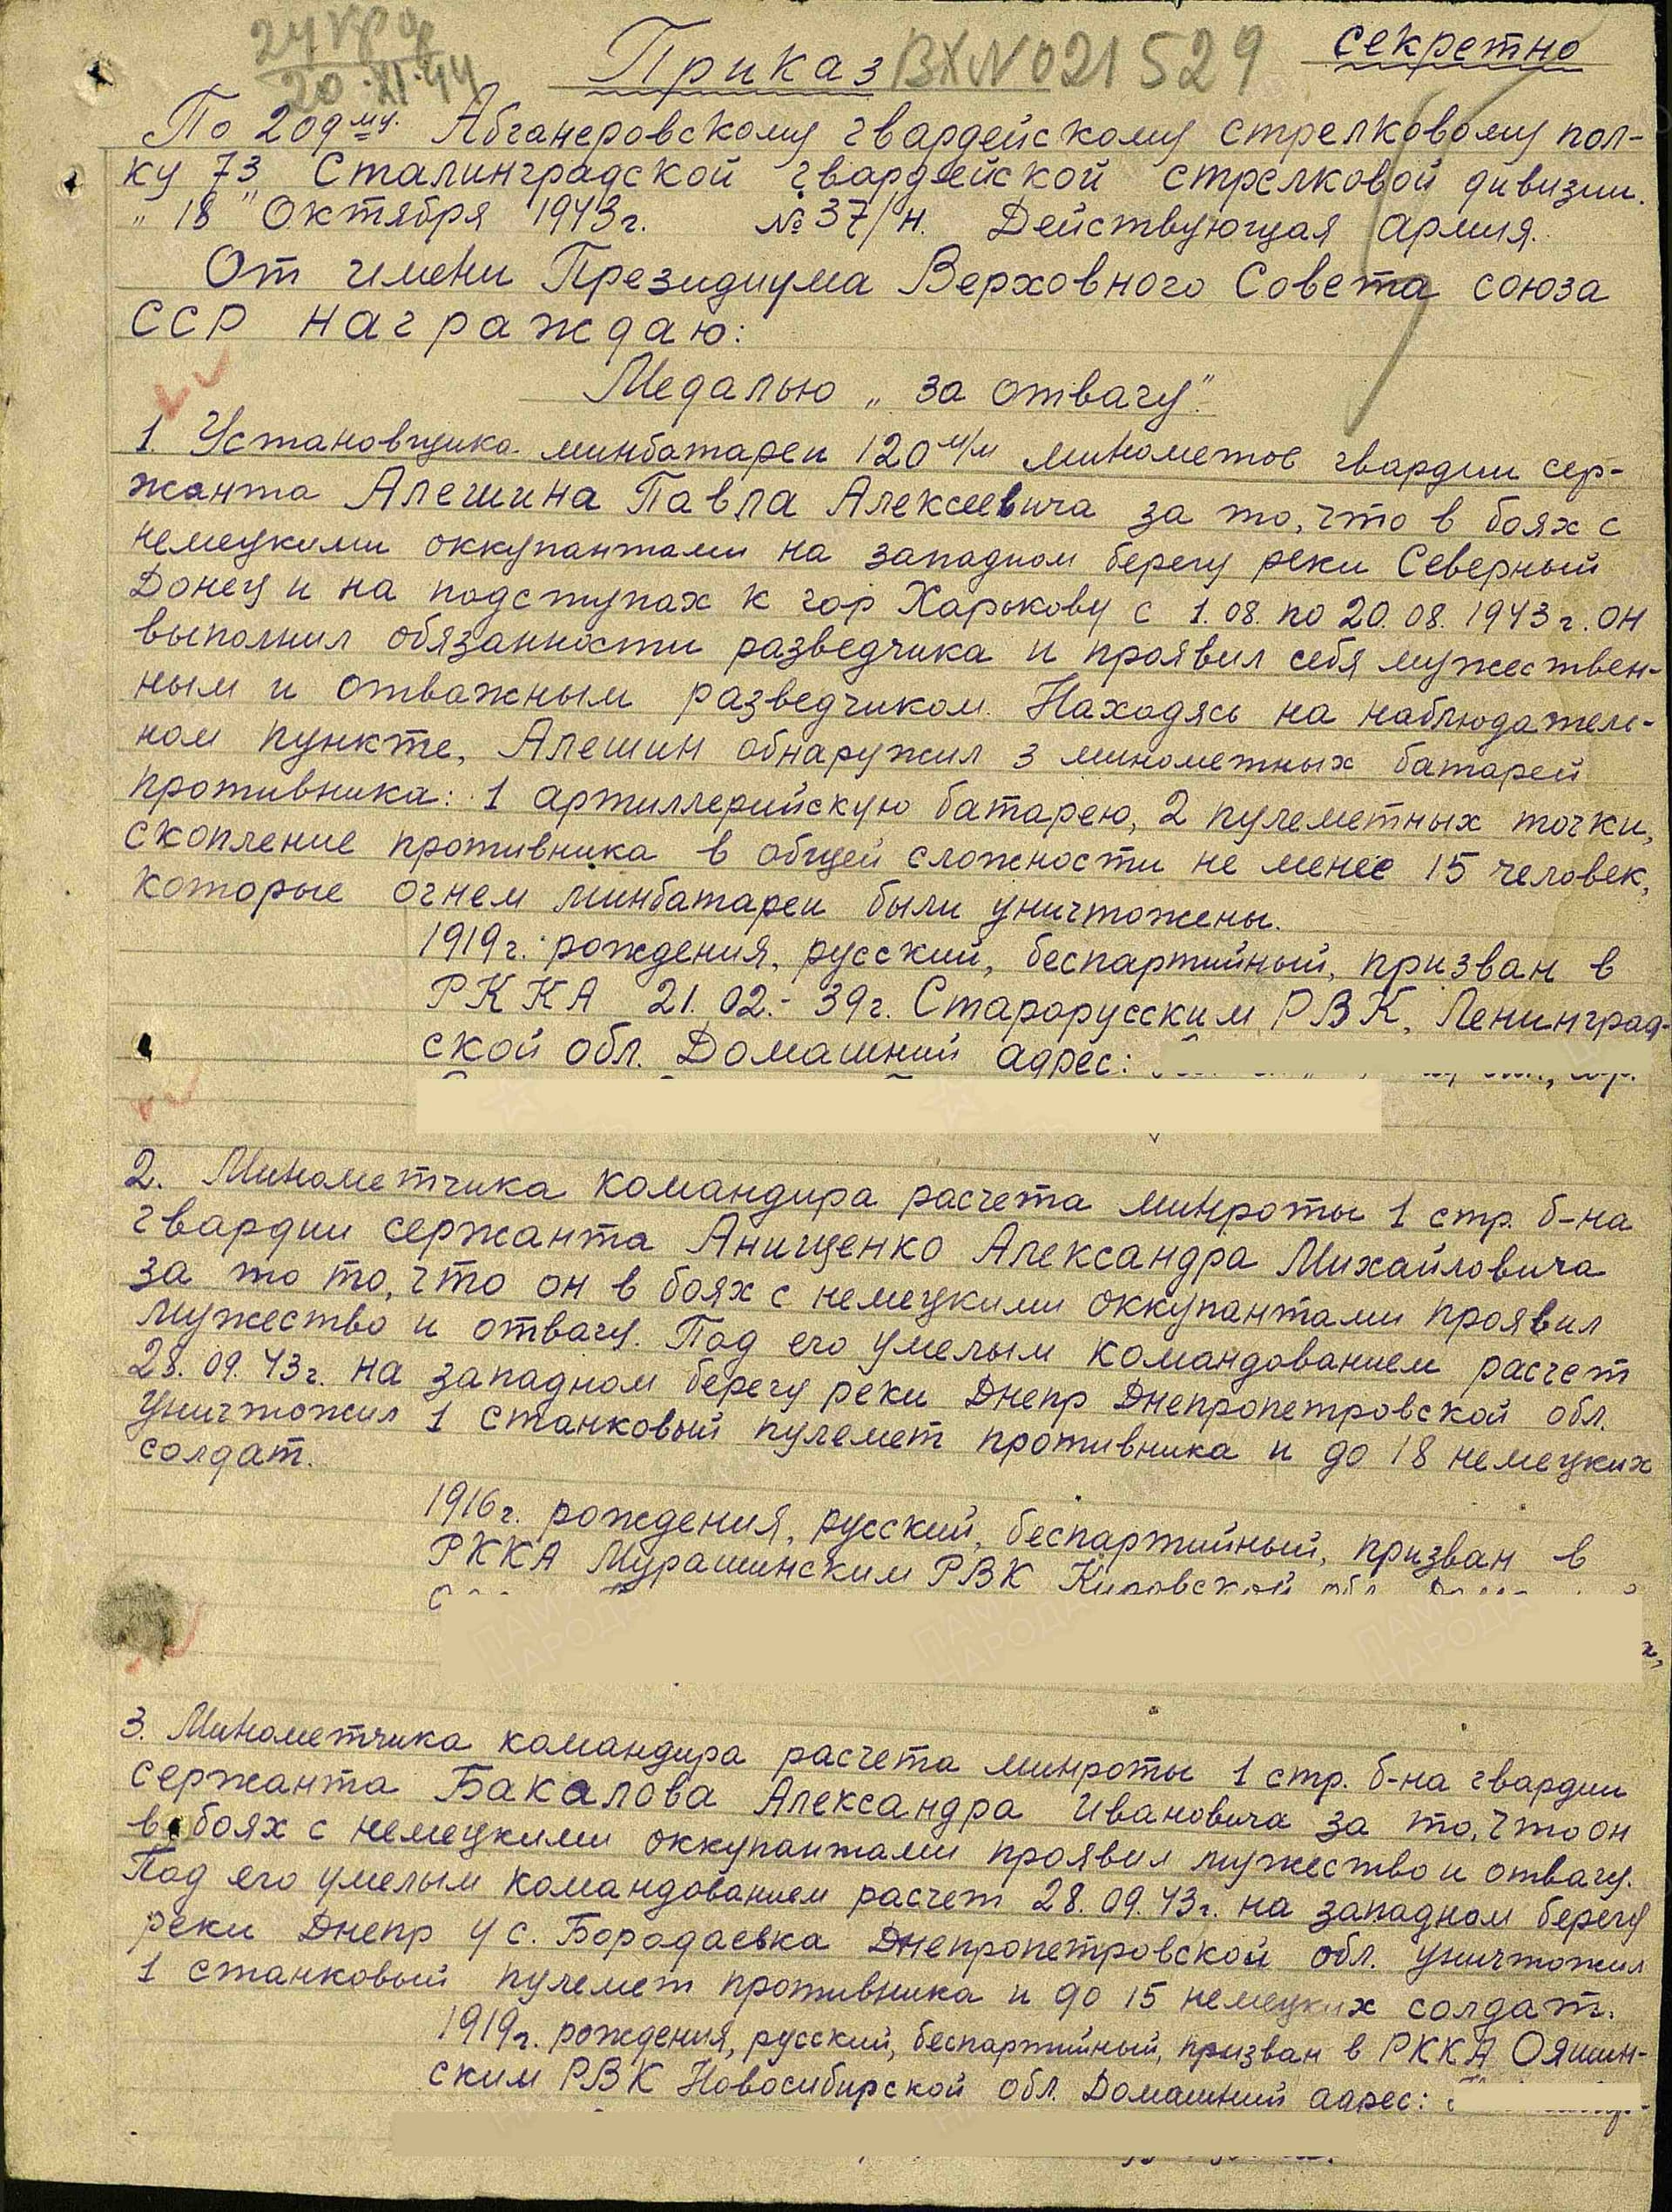 секретно
20.XI.44
Приказ ВХ№021529
По 209му Абганеровскому гвардейскому стрелковому пол-
ку 73 Сталинградской гвардейской стрелковой дивизии.
"18" Октября 1943г. №37/н. Действующая армия.
От имени Президиума Верховного Совета союза
ССР награждаю:
Медалью "за отвагу".
1. Установщика минбатареи 120 м/м минометов гвардии сер-
жанта Алешина Павла Алексеевича за то, что в боях с
немецкими оккупантами на западном берегу реки Северный
Донец и на подступах к гор Харькову с 1.08. по 20.08.1943г. он
выполнил обязанности разведчика и проявил себя мужествен-
ным и отважным разведчиком. Находясь на наблюдатель-
ном пункте, Алешин обнаружил 3 минометных батарей
противника: 1 артиллерийскую батарею, 2 пулеметных точки,
скопление противника в общей сложности не менее 15 человек,
которые огнем минбатареи были уничтожены.
1919г. рождения, русский, беспартийный, призван в
РККА 21.02.-39г. Старорусским РВК, Ленинград-
ской обл. Домашний адрес:
2. Минометчика командира расчета минроты 1 стр. б-на
гвардии сержанта Анищенко Александра Михайловича
за то то, что он в боях с немецкими оккупантами проявил
мужество и отвагу. Под его умелым командованием расчет
28.09.43г. на западном берегу реки Днепр Днепропетровской обл.
уничтожил 1 станковый пулемет противника и до 18 немецких
солдат.
1916г. рождения, русский, беспартийный, призван в
РККА Мурашинским РВК Кировской обл.
3. Минометчика командира расчета минроты 1 стр. б-на гвардии
сержанта Бакалова Александра Ивановича за то, что он
в боях с немецкими оккупантами проявил мужество и отвагу.
Под его умелым командованием расчет 28.09.43г. на западном берегу
реки Днепр у с. Бородаевка Днепропетровской обл. уничтожил
1 станковый пулемет противника и до 15 немецких солдат.
1919г. рождения, русский, беспартийный, призван в РККА Ояшин-
ским РВК Новосибирской обл. Домашний адрес: